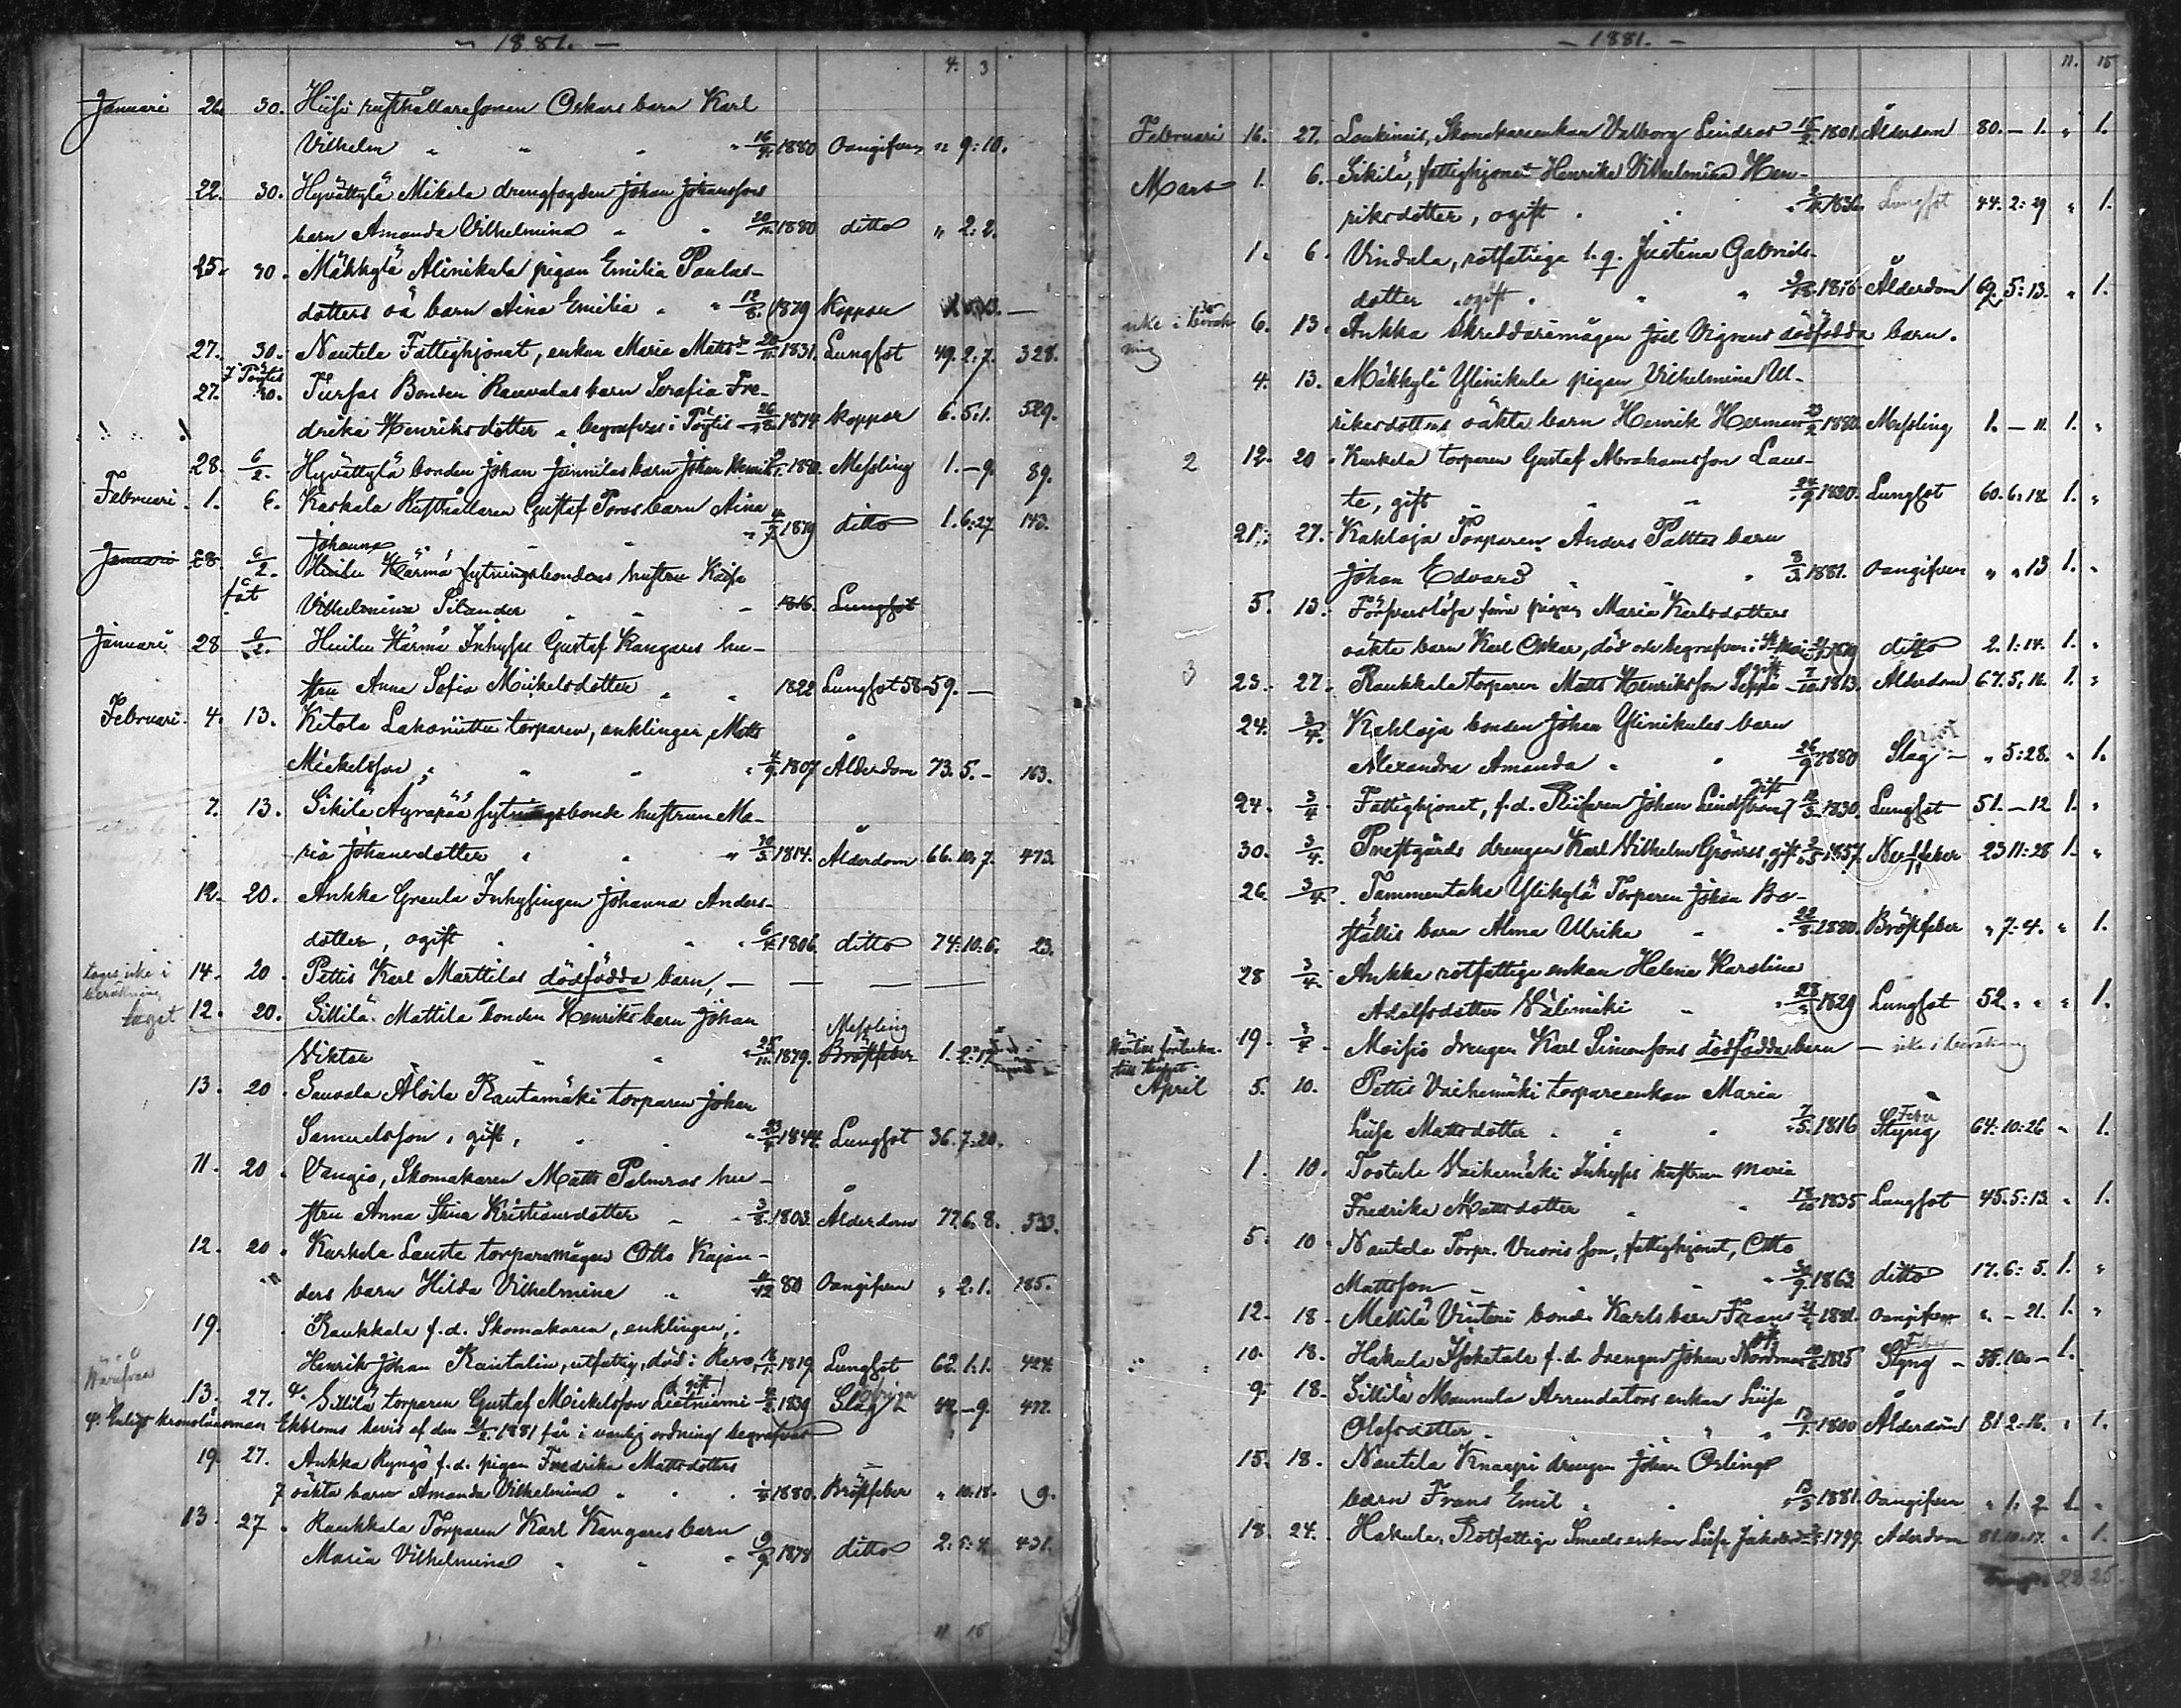 - 1881. -
4. 3
Januari 26. 30. Hiisi rusthållaresonen Oskars barn Karl
Vilhelm " " " " 16/9. 1880 Oangifven " 9:10.
22. 30. Hyvättylä Mikola drengfogden Johan Johanssons
barn Amanda Vilhelmina " " 20/11. 1880 ditto " 2:2.
25. 30. Mäkkylä Alinikula pigan Emilia Paulus-
dotters oä barn Aina Emilia " " 12/8. 1879 Koppor
27. 30. Nautela Fattighjonet, enkan Maria Matsd. 20/11. 1831. Lungsot 49. 2: 7. 328.
27. 30. Bonden Rauvalas barn Serafia Fre-
drika Henriksdotter, begrafves i Töytis 26/8. 1874 koppor 6. 5:1. 529.
28. 6/2. Hyvättylä bonden Johan Jannilas barn Johan Henrik 1880. Messling 1. - 9. 89.
Februari. 1. 6. Kaskala Rusthållaren Gustaf Poros barn Aina
Johanna " " " 4/7. 1879 ditto 1. 6:27 143.
Januari 28. 6/2. Huilu Härmä sytningsbondens hustru Kajsa
Vilhelmina Silander " " - 1816. Lungsot
Januari 28 6/2. Huilu Härmä Inhyses Gustaf Kangars hu-
stru Anna Sofia Mickelsdotter " " 1822 Lungsot 58-59. -
Februari. 4. 13. Ketola Lakoniittu torparen, enklingen, Matts
Mickelsson, " " " 4/9. 1807 Ålderdom 73. 5. - 163.
7. 13. Sikilä Äyräpää sytningsbonde hustrun Ma-
ria Johansdotter " " " 30/3. 1814. Ålderdom 66. 10: 7. 473.
12. 20. Ankka Greula Inhysingen Johanna Anders-
dotter, ogift " " " 6/4. 1806. ditto 74: 10: 6. 23.
tages icke i beräkning 14. 20. Pettis Karl Marttilas dödfödda barn, - - - -
taget 12. 20. Sillilä Mattila bonden Henriks barn Johan
Messling
Viktor " " " 25/11. 1879. Bröstfeber 1. 2: 17
13. 20. Sauvala Aloila Rautamäki torparen Johan
Samuelsson, gift, " " 23/6. 1844. Lungsot 36. 7: 20.
11. 20. Vangio, Skomakaren Matts Palmros hu-
stru Anna Stina Kristiansdotter " " 3/8. 1803. Ålderdom 77. 6. 8. 533.
12. 20. Kurkela Lauste torparemågen Otto Kajan-
ders barn Hilda Vilhelmina " 11/12 80 Oangifven " 2: 1. 185.
19. Raukkala f.d. Skomakaren, enklingen,
Henrik Johan Rantalin, utfattig, död i 18/1. 1819 Lungsot 62. 1. 1. 424.
13. 27. φ. Sillilä torparen Gustaf Mickelsson (gift) 4/2. 1839 Slag 42. - 9. 477.
φ. Enligt kronolänsman Ekbloms bevis af den 21/2. 1881 får i vanlig ordning begrafvas
19. 27. Ankka Kyngö f.d. pigan Fredrika Mattsdotters
7 oäkta barn Amanda Vilhelmina " " 1/4. 1880. Bröstfeber " 10: 18. 9.
13. 27. Raukkala Torparen Karl Kangars barn
Maria Vilhelmina " " 9/9. 1878 ditto 2: 5: 4. 431.
11 15
- 1881. -
11. 15
Februari 16. 27. Loukinais, Skomakareenkan Valborg Lindros 15/2. 1801. Ålderdom 80. - 1. " 1.
Mars 1. 6. Sikilä, fattighjonet Henrika Vilhelmina Hen-
riksdotter, ogift " " 1836. Lungsot 44. 2: 29 " 1.
1. 6. Vindala, rotfattiga l.q. Justina Gabriels-
dotter ogift " " " Ålderdom 5: 13. " 1.
icke i beräkning 6. 13. Ankka Skreddaremågen Joel Vigrens dödfödda barn.
4. 13. Mäkkylä Ylinikula pigan Vilhelmina Ul-
riksdotters oäkta barn Henrik Herman 23/2 1880. Messling 1. - 11. 1. "
2 12. 20. Kurkela torparen Gustaf Abrahamsson Laus-
te, gift " " 24/9. 1820. Lungsot 60. 6: 18. 1. "
21. 27. Kahloja Torparen Anders Palttas barn
Johan Edvard " " " 8/3. 1881. Oangifven " " 13 1. "
5. 13. pigan Maria Karlsdotters
oäkta barn Karl Oskar, död och begrafven i St. Marie 1879 ditto 2. 1: 14. 1. "
3 23. 27. Raukkala torparen Matts Henriksson Seppä gift 7/10. 1813. Ålderdom 67. 5: 16. 1. "
24. 3/4. Kahloja bonden Johan Ylinikulas barn
Alexandra Amanda " " 26/9. 1880 Slag - " 5: 28. " 1.
24. 3/4. Fattighjonet, f.d. Johan Lindström gift 12/3. 1830. Lungsot 51. - 12 1. "
30. 3/4. Prestgårds drengen Karl Vilhelm Grönros, gift 2/5. 1857. Nerffeber 23 11: 28 1. "
26 3/4. Tammentaka Ylikylä Torparen Johan Bo-
ställis barn Alma Ulrika " " 22/8. 1880. Bröstfeber " 7: 4. " 1.
28 3/4. Ankka rotfattige enkan Helena Karolina
Adolfsdotter Välimäki " " 28/3. 1829 Lungsot 52. " " " 1.
19. 3/4. Moisio drengen Karl Simonssons dödfödda barn - icke i beräkning
April 5. 10. Pettis Vaihemäki torpareenkan Maria
Feber
Luisa Mattsdotter " " " 7/5. 1816 Styng 64: 10: 26 " 1.
1. 10. Tootula Vaihemäki Inhyses hustrun Maria
Fredrika Mattsdotter " " 18/10 1835 Lungsot 45. 5: 13. " 1.
5. 10. Nautela Torpr. Vuoris son, fattighjonet, Otto
Mattsson " " " 30/9. 1863. ditto 17. 6: 5. 1. "
12. 18. Mellilä Vinteri bond. Karls barn Frans 1881. oangifven " - 21. 1. "
10. 18. Hakula Isotalo f.d. drengen Johan Nordman 1825 Styng - 55. 10: - 1.
9. 18. Sillilä Mannula Arrendators enkan Luisa
Olofsdotter " " " 1800 Ålderdom 81 2: 16. " 1.
15. 18. Nautela Knaapi drengen Johan Orlings
barn Frans Emil " " 13/3. 1881. Oangifven " 1: 2 1. "
18. 24. Hakula, Rotfattige Smedsenkan Luisa Jakobsd. 1799. Ålderdom 81. 10: 17. " 1.
22 25.